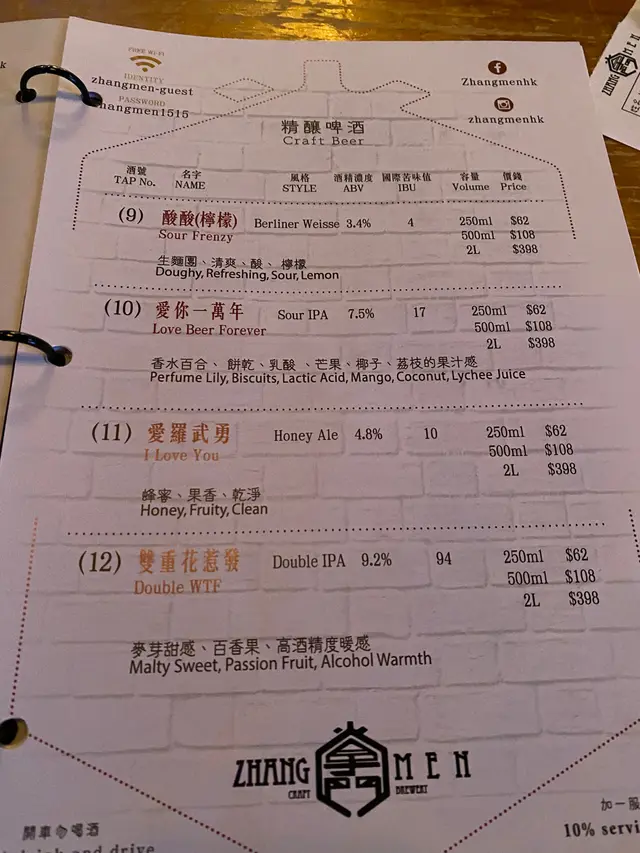 FREE WI-FI
IDENTITY
zhangmen-guest
PASSWORD
zhangmen1515
Zhangmenhk
zhangmenhk
精釀啤酒
Craft Beer
酒號 名字 風格 酒精濃度 國際苦味值 容量 價錢
TAP No. NAME STYLE ABV IBU Volume Price
(9) 酸酸(檸檬) Berliner Weisse 3.4% 4 250ml $62
Sour Frenzy 500ml $108
2L $398
生麵團、清爽、酸、檸檬
Doughy, Refreshing, Sour, Lemon
(10) 愛你一萬年 Sour IPA 7.5% 17 250ml $62
Love Beer Forever 500ml $108
2L $398
香水百合、餅乾、乳酸、芒果、椰子、荔枝的果汁感
Perfume Lily, Biscuits, Lactic Acid, Mango, Coconut, Lychee Juice
(11) 愛羅武勇 Honey Ale 4.8% 10 250ml $62
I Love You 500ml $108
2L $398
蜂蜜、果香、乾淨
Honey, Fruity, Clean
(12) 雙重花惹發 Double IPA 9.2% 94 250ml $62
Double WTF 500ml $108
2L $398
麥芽甜感、百香果、高酒精度暖感
Malty Sweet, Passion Fruit, Alcohol Warmth
ZHANG 掌門 MEN
CRAFT BREWERY
開車勿喝酒
drink and drive
加一服
10% servi